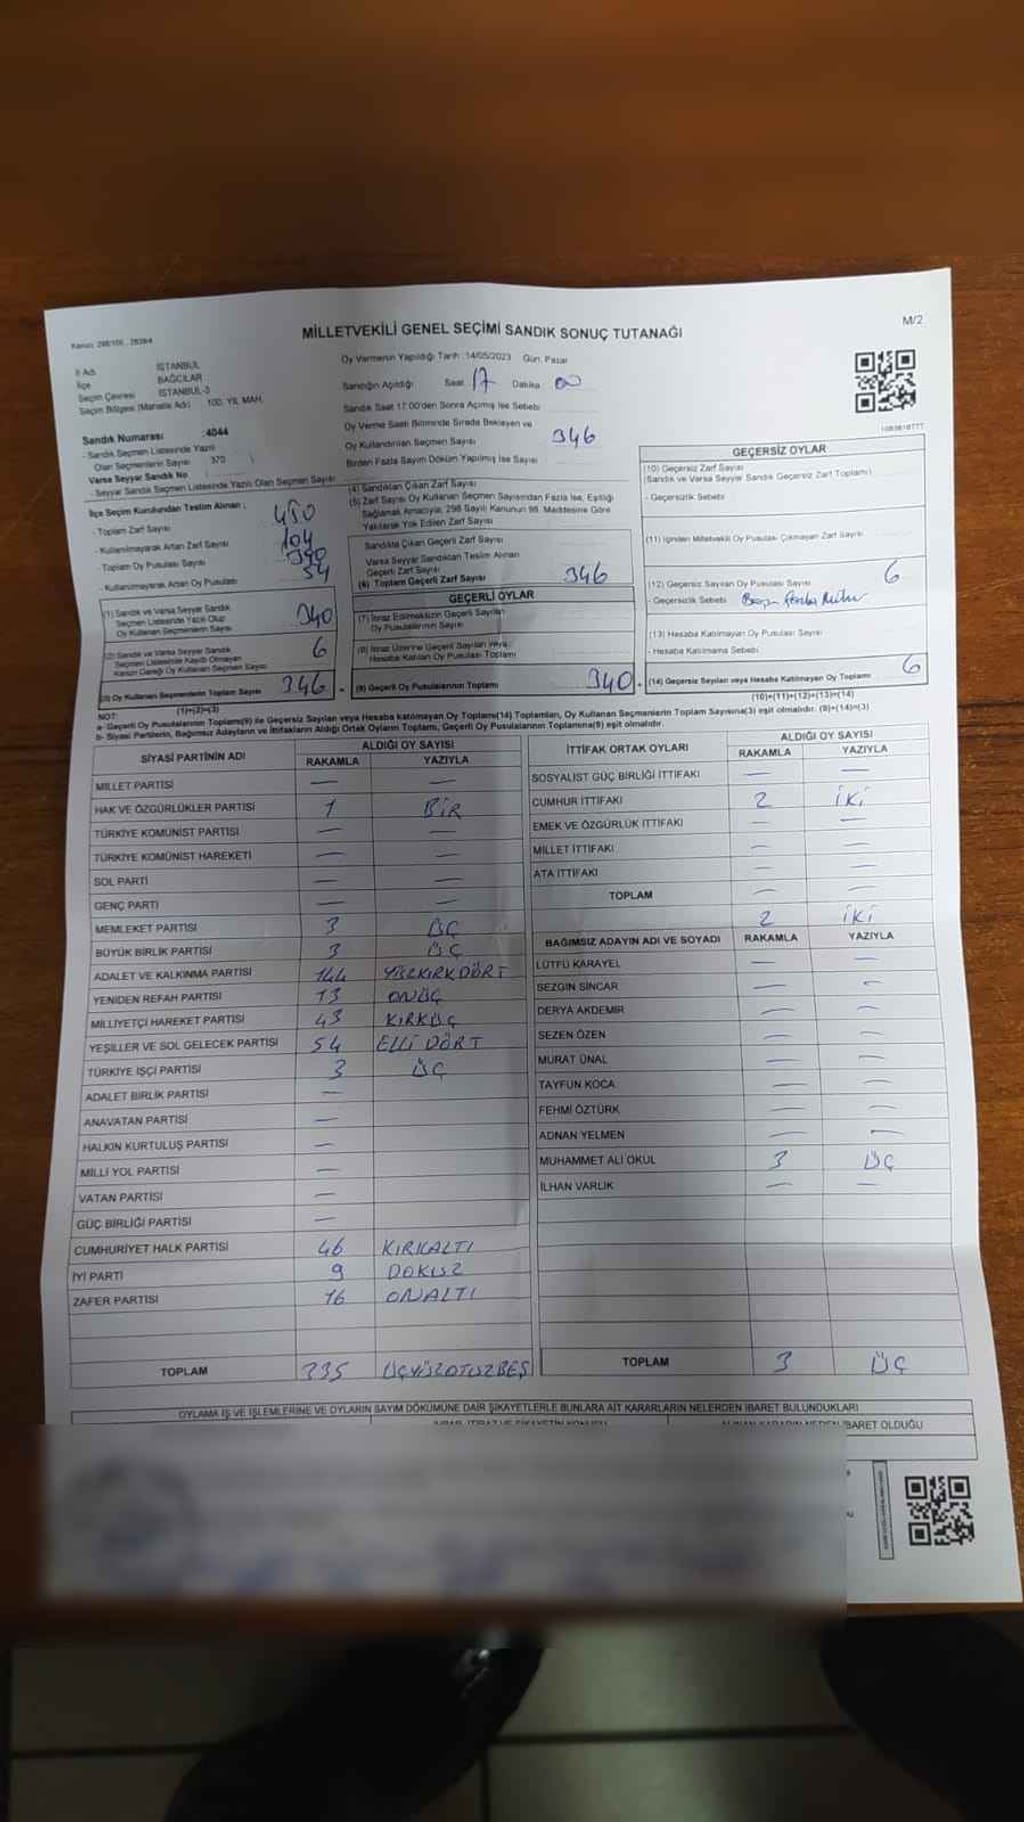 MİLLETVEKİLİ GENEL SEÇİMİ SANDIK SONUÇ TUTANAĞI
M/2
İl Adı İSTANBUL
İlçe BAĞCILAR
Seçim Çevresi İSTANBUL-3
Seçim Bölgesi (Mahalle Adı) 100. YIL MAH.
Sandık Numarası :4044
- Sandık Seçmen Listesinde Yazılı
Olan Seçmenlerin Sayısı 370
Varsa Seyyar Sandık No
- Seyyar Sandık Seçmen Listesinde Yazılı Olan Seçmen Sayısı
Oy Vermenin Yapıldığı Tarih :14/05/2023 Gün: Pazar
Sandığın Açıldığı Saat 17 Dakika 00
Sandık Saat 17.00'den Sonra Açılmış İse Sebebi
Oy Verme Saati Bitiminde Sırada Bekleyen ve
Oy Kullandırılan Seçmen Sayısı 346
Birden Fazla Sayım Döküm Yapılmış İse Sayısı
İlçe Seçim Kurulundan Teslim Alınan :
- Toplam Zarf Sayısı 450
- Kullanılmayarak Artan Zarf Sayısı 104
- Toplam Oy Pusulası Sayısı
- Kullanılmayarak Artan Oy Pusulası
(1) Sandık ve Varsa Seyyar Sandık
Seçmen Listesinde Yazılı Olup
Oy Kullanan Seçmenlerin Sayısı 340
(2) Sandık ve Varsa Seyyar Sandık
Seçmen Listesinde Kaydı Olmayan
Kanun Gereği Oy Kullanan Seçmen Sayısı 6
(3) Oy Kullanan Seçmenlerin Toplam Sayısı 346
(1)+(2)=(3)
(4) Sandıktan Çıkan Zarf Sayısı
(5) Zarf Sayısı Oy Kullanan Seçmen Sayısından Fazla İse, Eşitliği
Sağlamak Amacıyla, 298 Sayılı Kanunun 98. Maddesine Göre
Yakılarak Yok Edilen Zarf Sayısı
Sandıkta Çıkan Geçerli Zarf Sayısı
Varsa Seyyar Sandıktan Teslim Alınan
Geçerli Zarf Sayısı
(6) Toplam Geçerli Zarf Sayısı 346
GEÇERLİ OYLAR
(7) İtiraz Edilmeksizin Geçerli Sayılan
Oy Pusulalarının Sayısı
(8) İtiraz Üzerine Geçerli Sayılan veya
Hesaba Katılan Oy Pusulası Toplamı
(9) Geçerli Oy Pusulalarının Toplamı 340
GEÇERSİZ OYLAR
(10) Geçersiz Zarf Sayısı
(Sandık ve Varsa Seyyar Sandık Geçersiz Zarf Toplamı)
- Geçersizlik Sebebi
(11) İçinden Milletvekili Oy Pusulası Çıkmayan Zarf Sayısı
(12) Geçersiz Sayılan Oy Pusulası Sayısı 6
- Geçersizlik Sebebi
(13) Hesaba Katılmayan Oy Pusulası Sayısı
- Hesaba Katılmama Sebebi
(14) Geçersiz Sayılan veya Hesaba Katılmayan Oy Toplamı 6
(10)+(11)+(12)+(13)=(14)
NOT:
a- Geçerli Oy Pusulalarının Toplamı(9) ile Geçersiz Sayılan veya Hesaba katılmayan Oy Toplamı(14) Toplamları, Oy Kullanan Seçmenlerin Toplam Sayısına(3) eşit olmalıdır. (9)+(14)=(3)
b- Siyasi Partilerin, Bağımsız Adayların ve İttifakların Aldığı Ortak Oyların Toplamı, Geçerli Oy Pusulalarının Toplamına(9) eşit olmalıdır.
SİYASİ PARTİNİN ADI ALDIĞI OY SAYISI
RAKAMLA YAZIYLA
MİLLET PARTİSİ — —
HAK VE ÖZGÜRLÜKLER PARTİSİ 1 BİR
TÜRKİYE KOMÜNİST PARTİSİ — —
TÜRKİYE KOMÜNİST HAREKETİ — —
SOL PARTİ — —
GENÇ PARTİ — —
MEMLEKET PARTİSİ 3 ÜÇ
BÜYÜK BİRLİK PARTİSİ 3 ÜÇ
ADALET VE KALKINMA PARTİSİ 144 YÜZKIRKDÖRT
YENİDEN REFAH PARTİSİ 13 ONÜÇ
MİLLİYETÇİ HAREKET PARTİSİ 43 KIRKÜÇ
YEŞİLLER VE SOL GELECEK PARTİSİ 54 ELLİ DÖRT
TÜRKİYE İŞÇİ PARTİSİ 3 ÜÇ
ADALET BİRLİK PARTİSİ —
ANAVATAN PARTİSİ —
HALKIN KURTULUŞ PARTİSİ —
MİLLİ YOL PARTİSİ —
VATAN PARTİSİ —
GÜÇ BİRLİĞİ PARTİSİ —
CUMHURİYET HALK PARTİSİ 46 KIRKALTI
İYİ PARTİ 9 DOKUZ
ZAFER PARTİSİ 16 ONALTI
TOPLAM 335 ÜÇYÜZOTUZBEŞ
İTTİFAK ORTAK OYLARI ALDIĞI OY SAYISI
RAKAMLA YAZIYLA
SOSYALİST GÜÇ BİRLİĞİ İTTİFAKI — —
CUMHUR İTTİFAKI 2 İKİ
EMEK VE ÖZGÜRLÜK İTTİFAKI — —
MİLLET İTTİFAKI — —
ATA İTTİFAKI — —
TOPLAM — —
2 İKİ
BAĞIMSIZ ADAYIN ADI VE SOYADI RAKAMLA YAZIYLA
LÜTFÜ KARAYEL — —
SEZGİN SİNCAR — —
DERYA AKDEMİR — —
SEZEN ÖZEN — —
MURAT ÜNAL — —
TAYFUN KOCA — —
FEHMİ ÖZTÜRK — —
ADNAN YELMEN — —
MUHAMMET ALİ OKUL 3 ÜÇ
İLHAN VARLIK — —
TOPLAM 3 ÜÇ
OYLAMA İŞ VE İŞLEMLERİNE VE OYLARIN SAYIM DÖKÜMÜNE DAİR ŞİKAYETLERLE BUNLARA AİT KARARLARIN NELERDEN İBARET BULUNDUKLARI
İBARET OLDUĞU